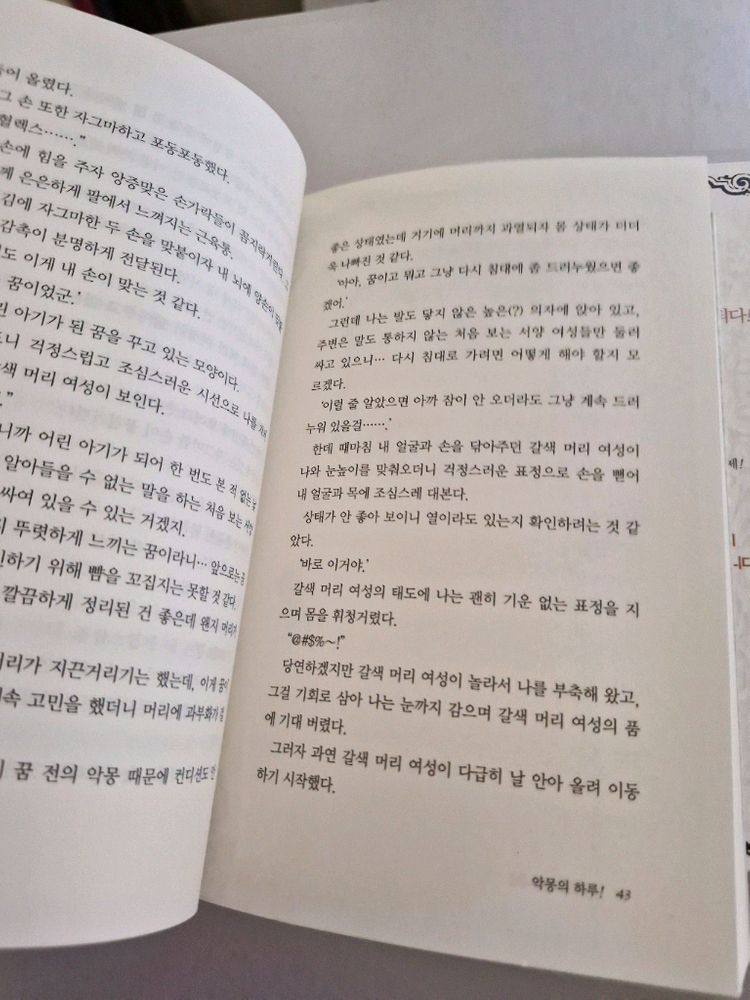 어 올렸다.
그 손 또한 자그마하고 포동포동했다.
헐렉스……."
손에 힘을 주자 앙증맞은 손가락들이 꼼지락거린다.
께 은은하게 팔에서 느껴지는 근육통.
김에 자그마한 두 손을 맞붙이자 내 뇌에 양손이
감촉이 분명하게 전달된다.
도 이게 내 손이 맞는 것 같다.
꿈이었군.'
린 아기가 된 꿈을 꾸고 있는 모양이다.
드니 걱정스럽고 조심스러운 시선으로 나를
색 머리 여성이 보인다.
."
니까 어린 아기가 되어 한 번도 본 적 없는
알아들을 수 없는 말을 하는 처음 보는 서양
싸여 있을 수 있는 거겠지.
뚜렷하게 느끼는 꿈이라니… 앞으로는
인하기 위해 뺨을 꼬집지는 못할 것 같다.
깔끔하게 정리된 건 좋은데 왠지 머리가
머리가 지끈거리기는 했는데, 이게 꿈이
속 고민을 했더니 머리에 과부화가
꿈 전의 악몽 때문에 컨디션도 안
좋은 상태였는데 거기에 머리까지 과열되자 몸 상태가 더더
욱 나빠진 것 같다.
'아아, 꿈이고 뭐고 그냥 다시 침대에 좀 드러누웠으면 좋
겠어.'
그런데 나는 발도 닿지 않은 높은(?) 의자에 앉아 있고,
주변은 말도 통하지 않는 처음 보는 서양 여성들만 둘러
싸고 있으니… 다시 침대로 가려면 어떻게 해야 할지 모
르겠다.
'이럴 줄 알았으면 아까 잠이 안 오더라도 그냥 계속 드러
누워 있을걸……'
한데 때마침 내 얼굴과 손을 닦아주던 갈색 머리 여성이
나와 눈높이를 맞춰오더니 걱정스러운 표정으로 손을 뻗어
내 얼굴과 목에 조심스레 대본다.
상태가 안 좋아 보이니 열이라도 있는지 확인하려는 것 같
았다.
'바로 이거야.'
갈색 머리 여성의 태도에 나는 괜히 기운 없는 표정을 지
으며 몸을 휘청거렸다.
"@#$%~!"
당연하겠지만 갈색 머리 여성이 놀라서 나를 부축해 왔고,
그걸 기회로 삼아 나는 눈까지 감으며 갈색 머리 여성의 품
에 기대 버렸다.
그러자 과연 갈색 머리 여성이 다급히 날 안아 올려 이동
하기 시작했다.
악몽의 하루! 43